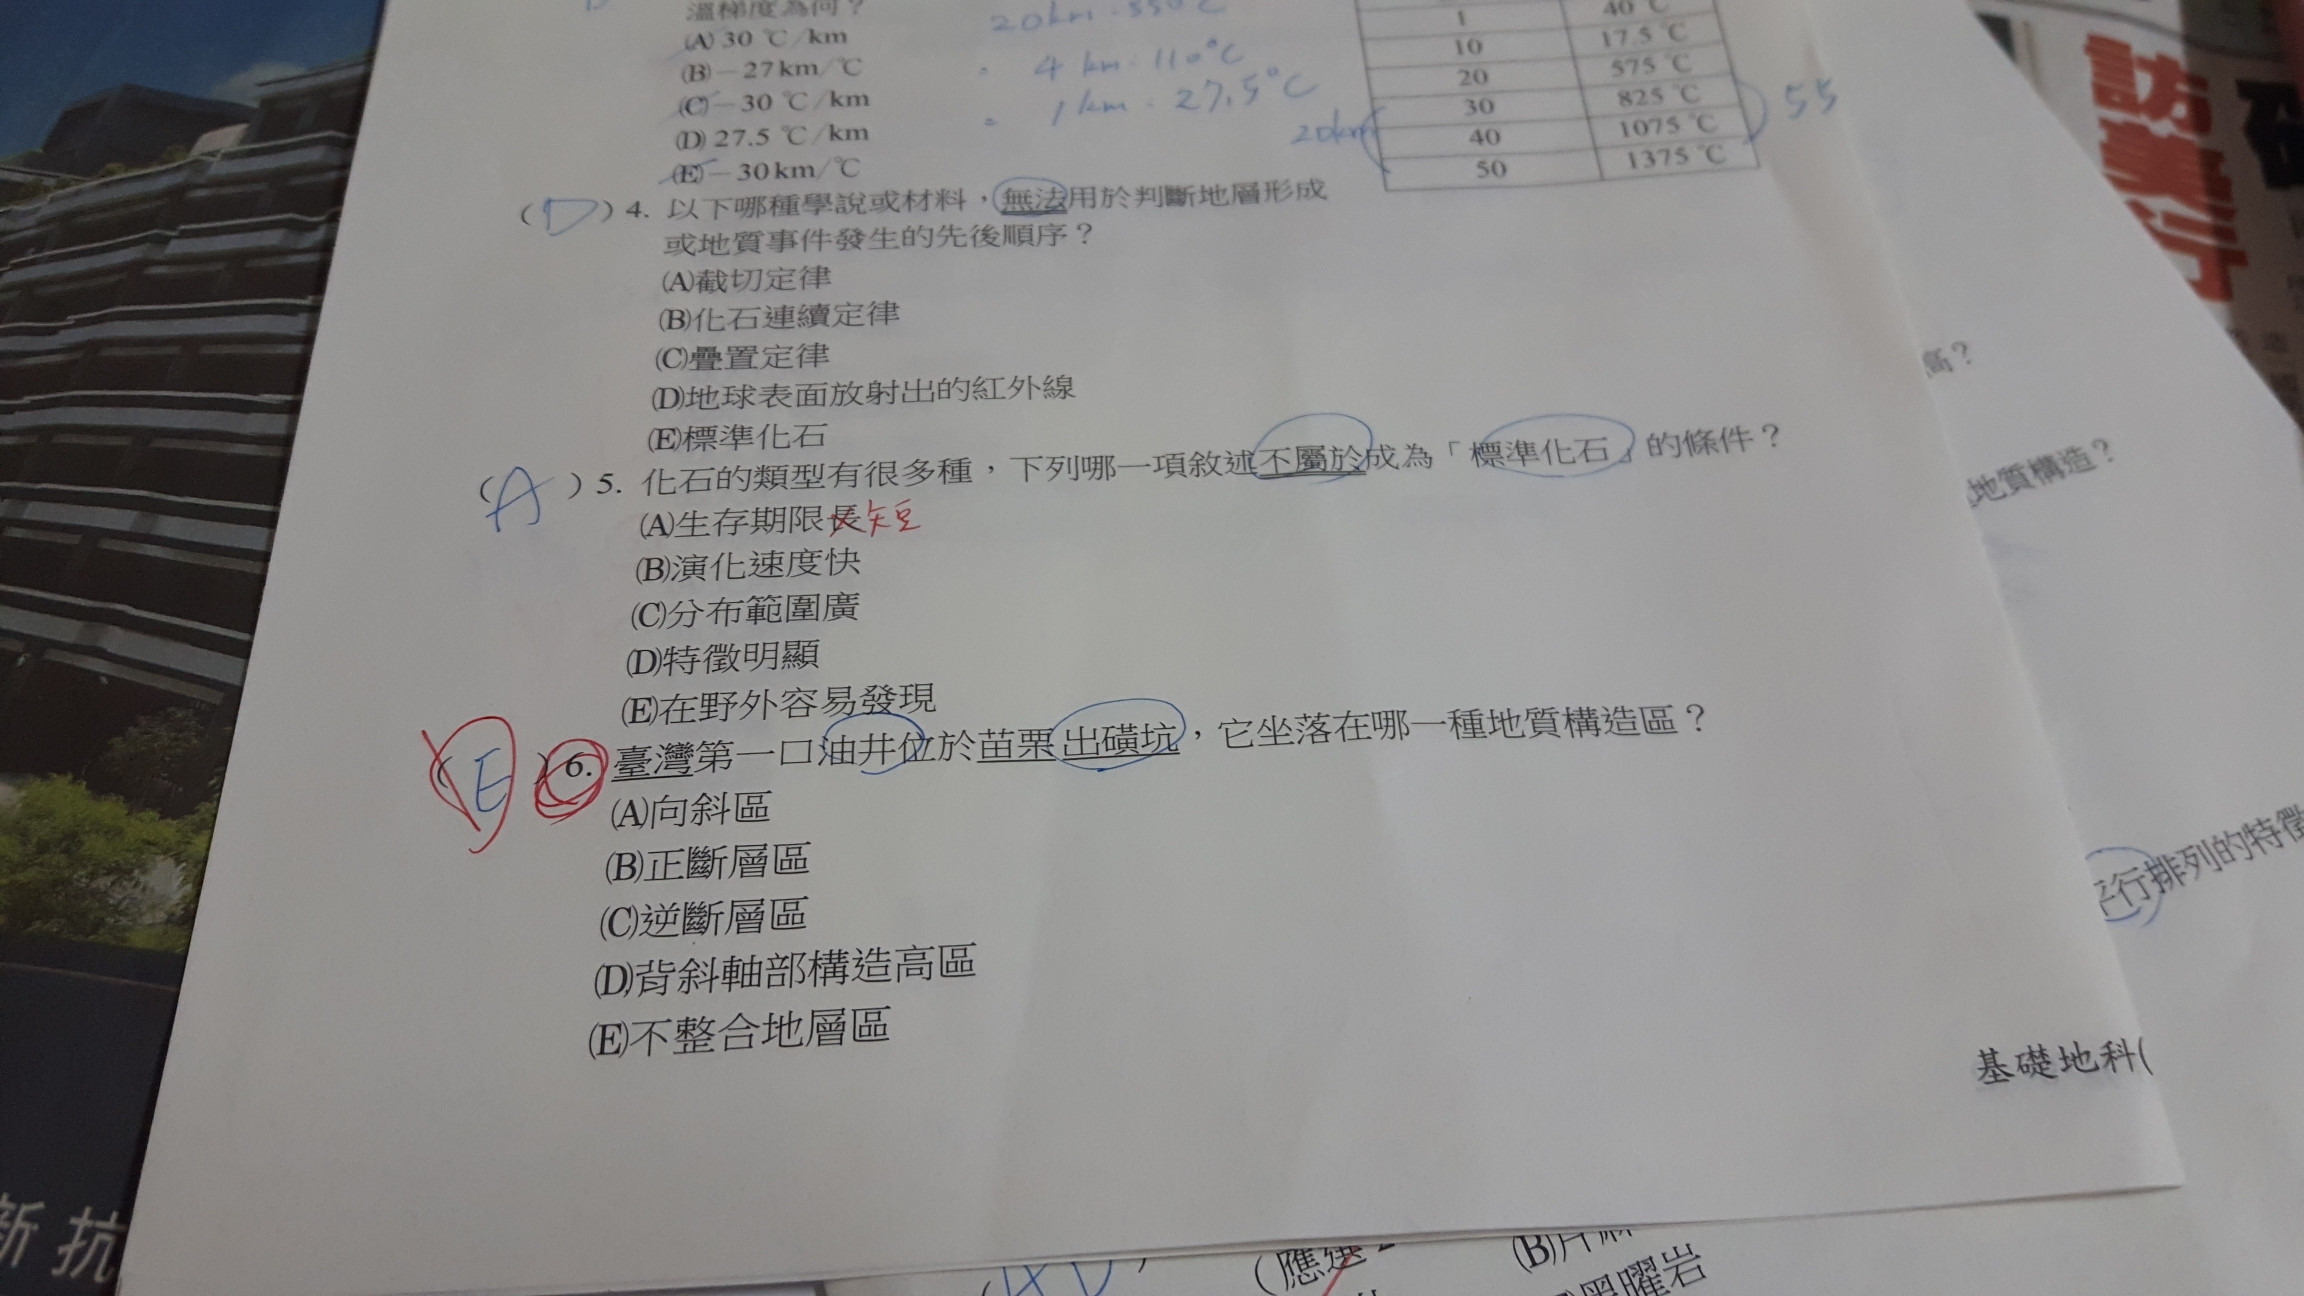 溫梯度為何？
(A) 30 ℃/km
(B)－27km/℃
(C)－30 ℃/km
(D) 27.5 ℃/km
(E)－30km/℃
20km · 550℃
= 4 km · 110℃
= 1 km · 27.5℃
1 40 ℃
10 17.5 ℃
20 575 ℃
30 825 ℃
40 1075 ℃
50 1375 ℃
20km
55
(D) 4. 以下哪種學說或材料，無法用於判斷地層形成
或地質事件發生的先後順序？
(A)截切定律
(B)化石連續定律
(C)疊置定律
(D)地球表面放射出的紅外線
(E)標準化石
(A) 5. 化石的類型有很多種，下列哪一項敘述不屬於成為「標準化石」的條件？
(A)生存期限長短
(B)演化速度快
(C)分布範圍廣
(D)特徵明顯
(E)在野外容易發現
(E) 6. 臺灣第一口油井位於苗栗出磺坑，它坐落在哪一種地質構造區？
(A)向斜區
(B)正斷層區
(C)逆斷層區
(D)背斜軸部構造高區
(E)不整合地層區
基礎地科(
高？
地質構造？
平行排列的特徵
訪美行
新抗
(應選2
(B)片麻
黑曜岩